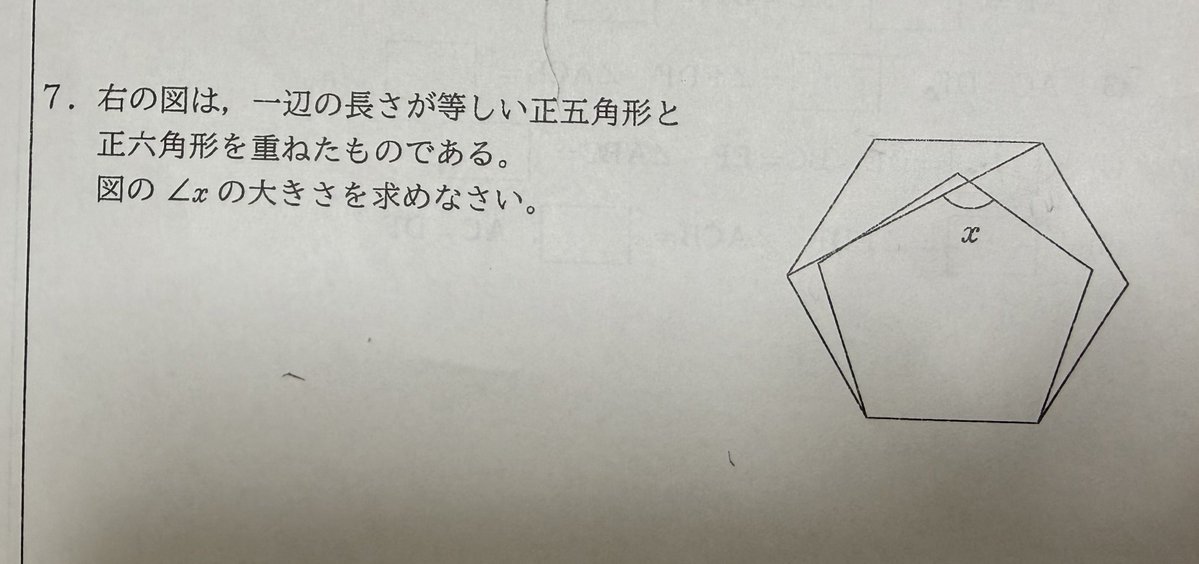 7. 右の図は，一辺の長さが等しい正五角形と
正六角形を重ねたものである。
図の ∠x の大きさを求めなさい。
x